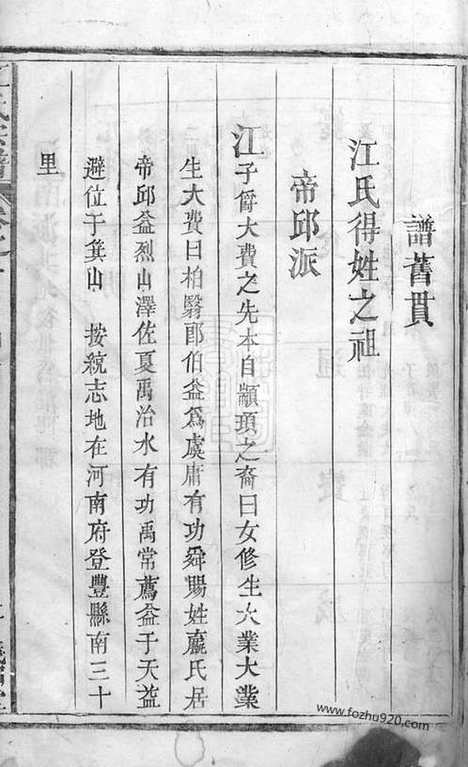 譜舊貫
江氏得姓之祖
帝邱派
江子爵大費之先本自顓頊之裔曰女修生大業大業
生大費曰柏翳郎伯益爲虞庸有功舜賜姓嬴氏居
帝邱益烈山澤佐夏禹治水有功禹常薦益于天益
避位于箕山 按統志地在河南府登豐縣南三十
里
www.fozhu920.com